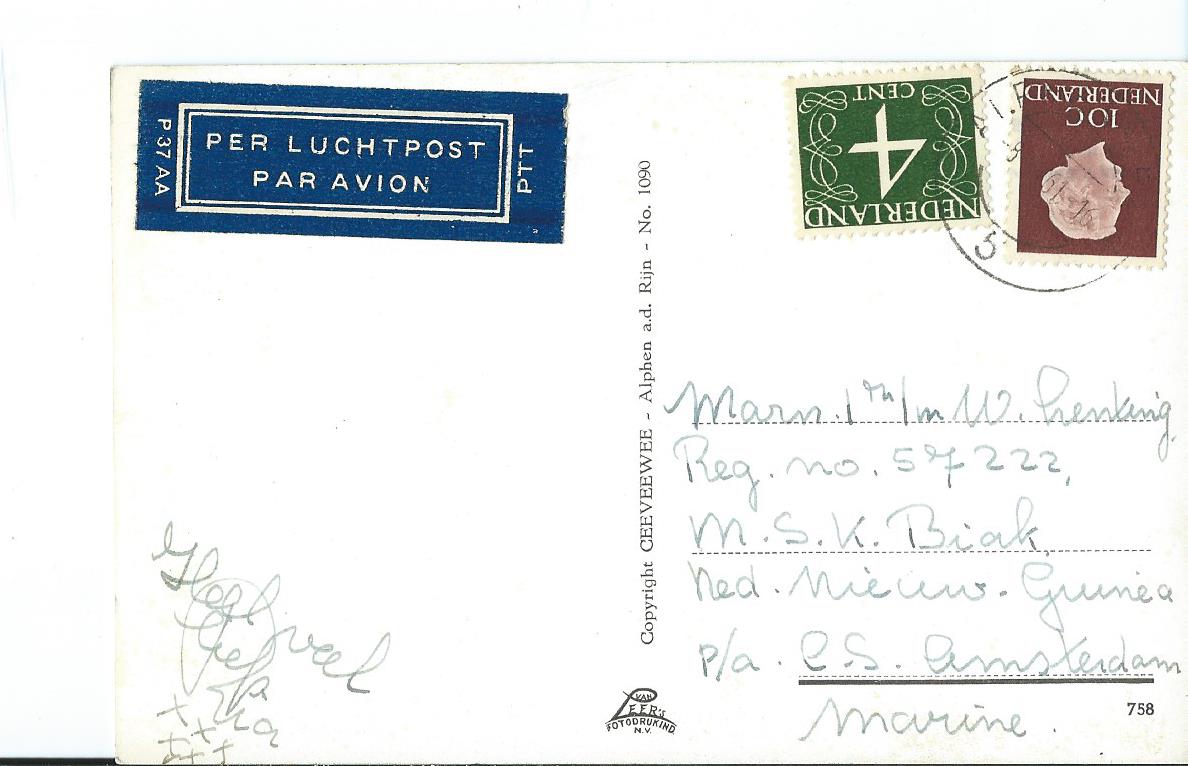 P37 AA
PER LUCHTPOST
PAR AVION
PTT
Copyright CEEVEEWEE - Alphen a.d. Rijn - No. 1090
CENT
4
NEDERLAND
NEDERLAND
10C
5
Marn. 1 m/m W. Lenking
Reg. no. 57222,
M.S.K. Biak,
Ned. Nieuw. Guinea
p/a. C.S. Amsterdam
Marine.
Heel veel
liefs
Ria
VAN
LEER'S
FOTODRUKIND.
N.V.
758